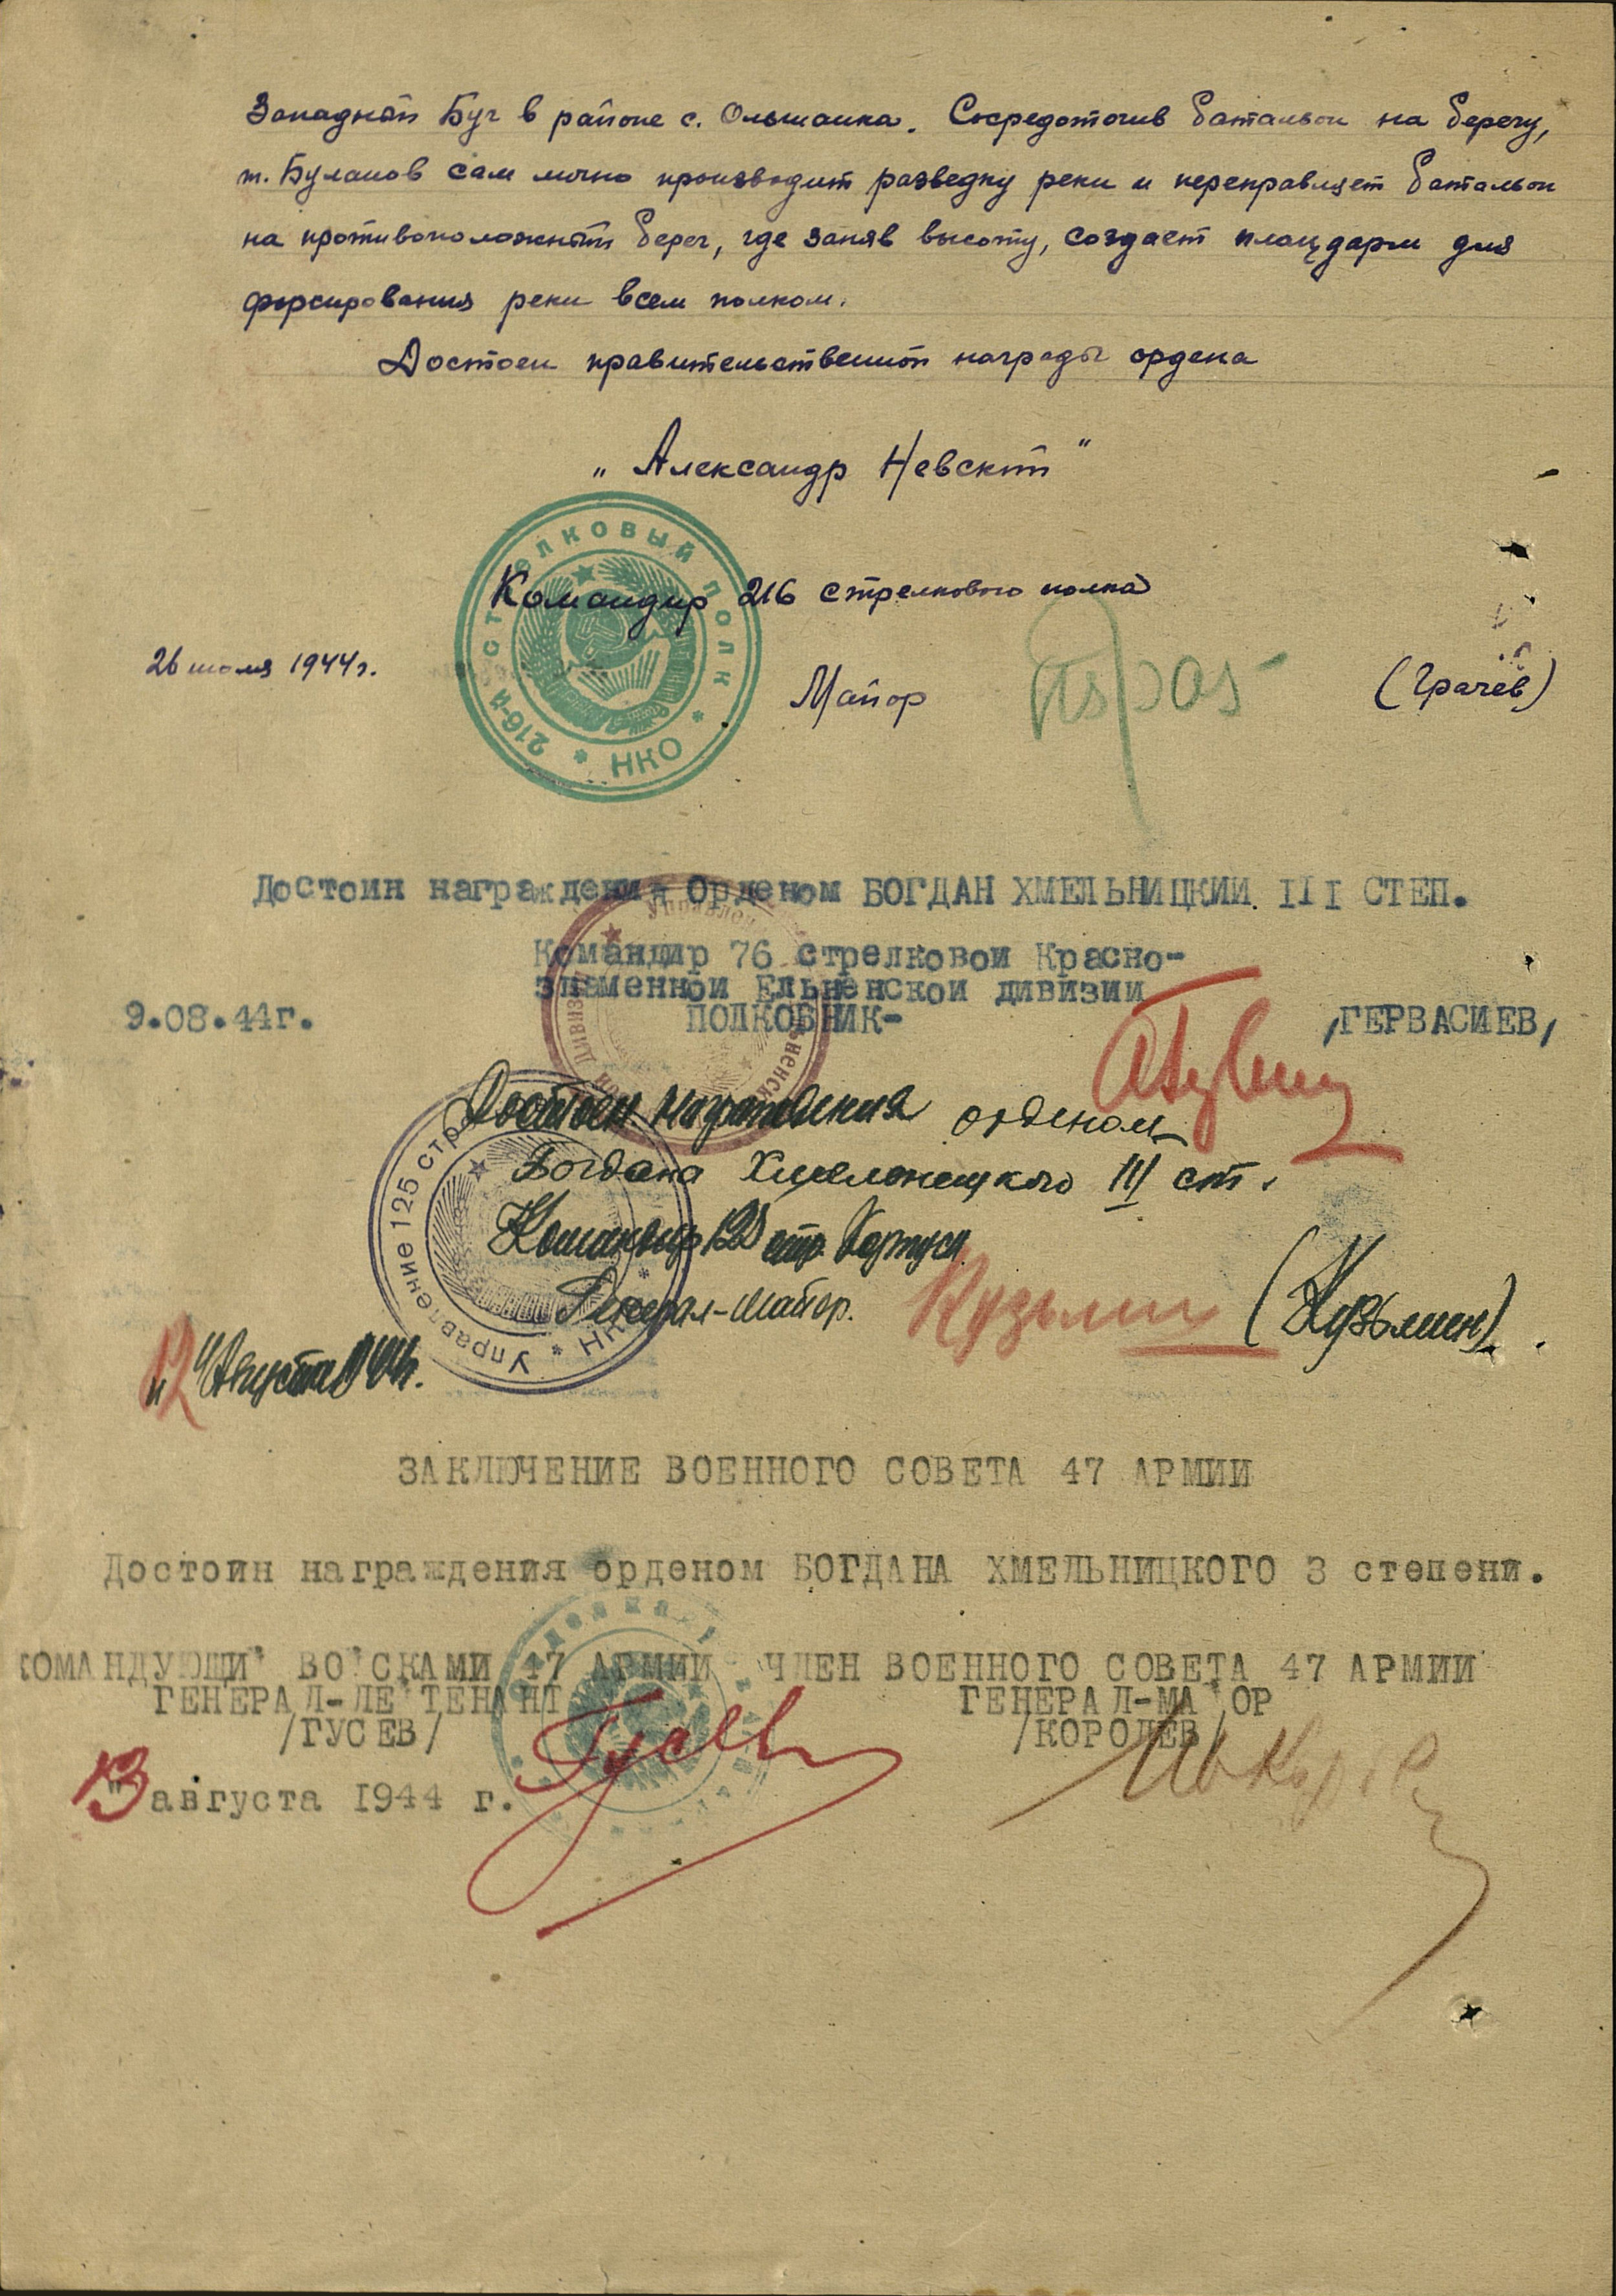 Западный Буг в районе с. Ольшанка. Сосредоточив батальон на берегу,
т. Буланов сам лично производит разведку реки и переправляет батальон
на противоположный берег, где заняв высоту, создает плацдарм для
форсирования реки всем полком.
Достоен правительственной награды ордена
„Александр Невский"
216-й стрелковый полк * НКО *
Командир 216 стрелкового полка
26 июля 1944г.
Майор (Грачёв)
Достоин награждения Орденом БОГДАН ХМЕЛЬНИЦКИИ III СТЕП.
Командир 76 стрелковои Красно-
знаменной Ельненскои дивизии
9.08.44г. ПОЛКОВНИК- /ГЕРВАСИЕВ/
Достоен награждения орденом
Богдана Хмельнецкого III ст.
Управление 125 стр
Командир 125 стр. Корпуса
Генерал-майор. Кузьмин (Кузьмин).
"12" Августа 1944г.
ЗАКЛЮЧЕНИЕ ВОЕННОГО СОВЕТА 47 АРМИИ
Достоин награждения орденом БОГДАНА ХМЕЛЬНИЦКОГО 3 степени.
КОМАНДУЮЩИЙ ВОЙСКАМИ 47 АРМИИ ЧЛЕН ВОЕННОГО СОВЕТА 47 АРМИИ
ГЕНЕРАЛ-ЛЕЙТЕНАНТ ГЕНЕРАЛ-МАЙОР
/ГУСЕВ/ Гусев /КОРОЛЕВ/
13 августа 1944 г.